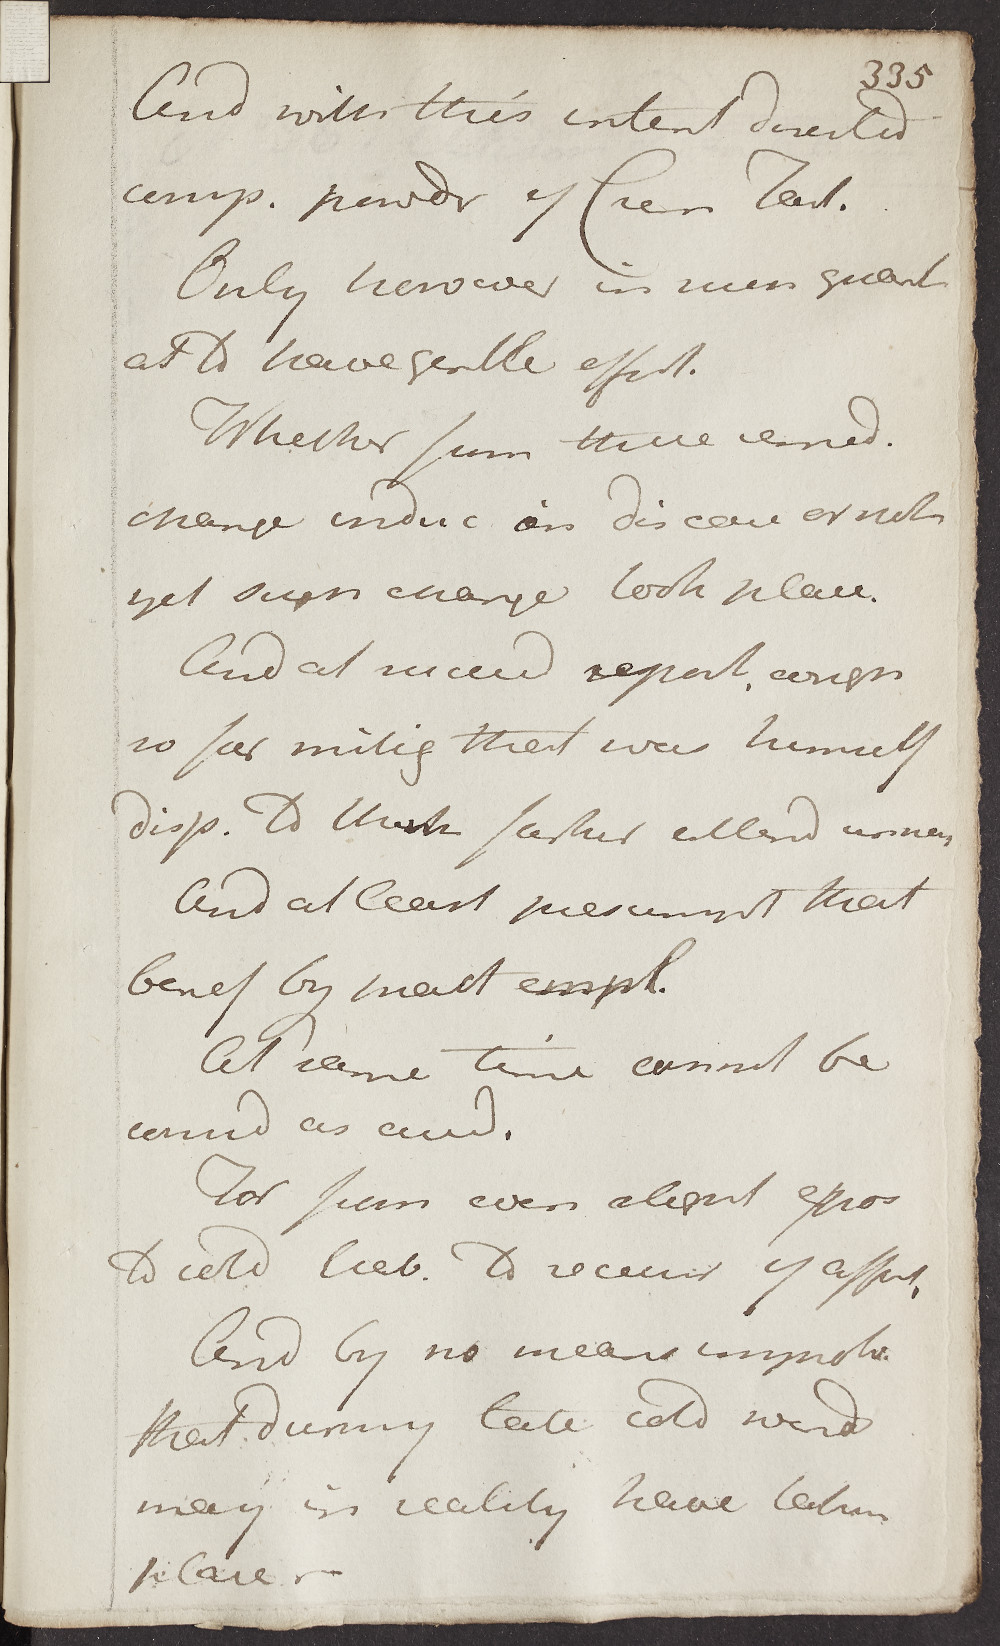 335
And with this intent directed
comp. powdr of Crem Tart.
Only however in such quant
as to have gentle effect.
Whether from these remed.
change induc in disease or not
yet such change took place.
And at second report, cough
so far mitig that was himself
disp. to think farther attend unnec
And at least presumpt that
benef by pract empl.
At same time cannot be
consid as cured.
For from even slight expos
to cold liab. to recurr of affect.
And by no means improb.
that during late cold wind
may in reality have taken
place